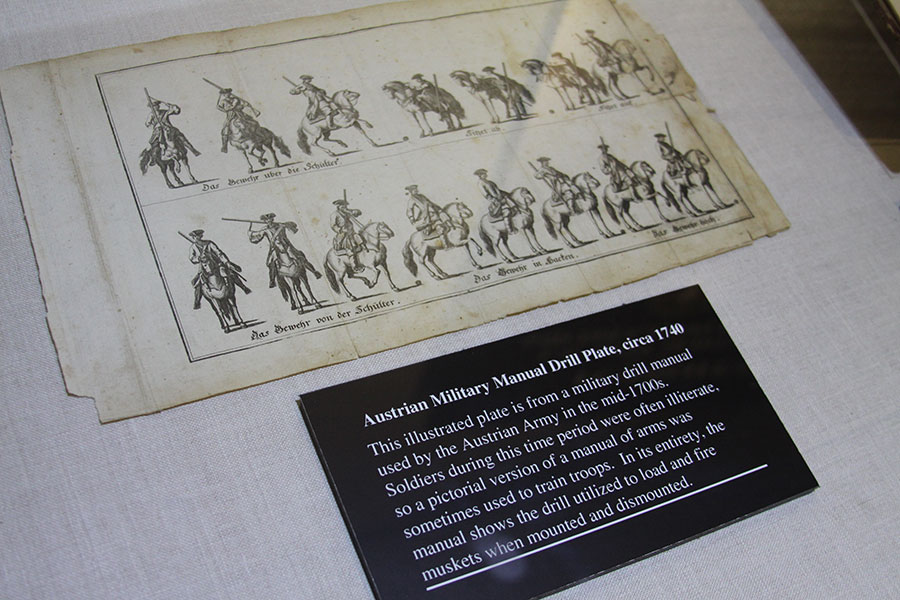 Das Gewehr uber die Schulter.
Sitzet ab.
Sitzet auf.
Das Gewehr von der Schulter.
Das Gewehr in Hacken.
Das Gewehr hoch.
Austrian Military Manual Drill Plate, circa 1740
This illustrated plate is from a military drill manual
used by the Austrian Army in the mid-1700s.
Soldiers during this time period were often illiterate,
so a pictorial version of a manual of arms was
sometimes used to train troops. In its entirety, the
manual shows the drill utilized to load and fire
muskets when mounted and dismounted.